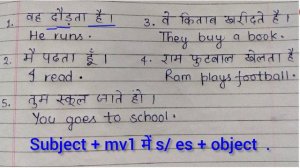 1. वह दौड़ता है । 3. वे किताब खरीदते है ।
He runs. They buy a book.
2. मैं पढता हूँ । 4. राम फुटबाल खेलता है
I read. Ram plays football.
5. तुम स्कूल जाते हो ।
You goes to school.
Subject + mv1 में s/ es + object .